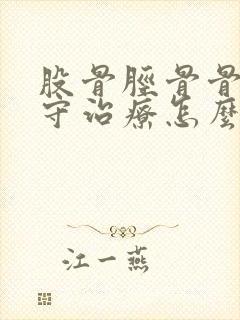 股骨脛骨骨
守治療怎麼
江一燕